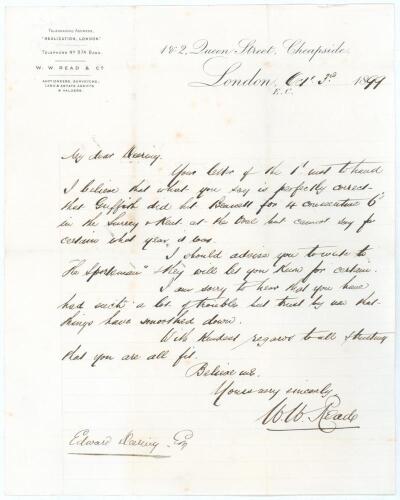 TELEGRAPHIC ADDRESS,
"REALIZATION, LONDON."
TELEPHONE No 874 BANK.
W. W. READ & Co
AUCTIONEERS, SURVEYORS,
LAND & ESTATE AGENTS
& VALUERS.
1 & 2, Queen Street, Cheapside,
London, Oct 3rd 1899
E.C.
My dear
Your letter of the 1st inst to hand
I believe that what you say is perfectly correct
that Griffith did hit for 4 consecutive 6s
in the Surrey & Kent at the Oval but cannot say for
certain what year it was.
I should advise you to write to
The Sportsman" they will let you know for certain.
I am sorry to hear that you have
had such a lot of trouble but trust by now that
things have smoothed down.
With kindest regards to all & trusting
that you are all fit.
Believe me.
Yours very sincerely
W. W. Read
Edward Esq